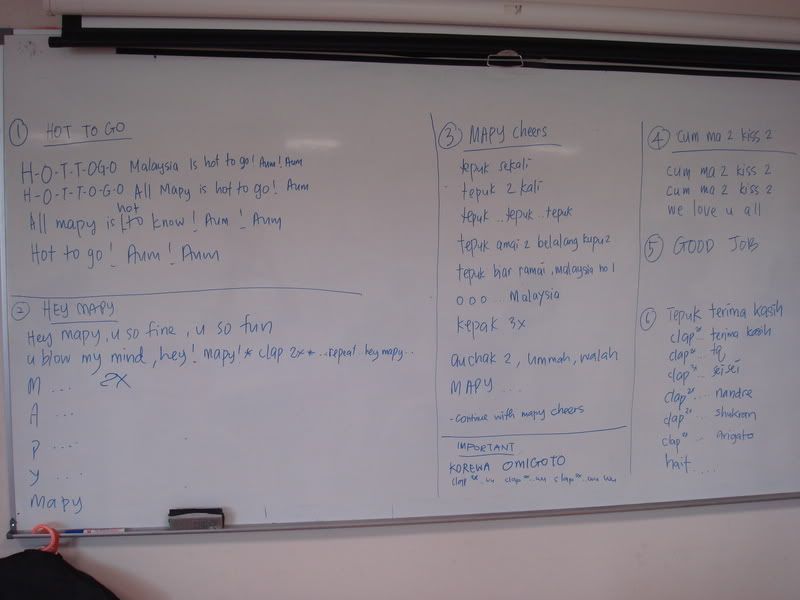 ① HOT TO GO
H-O-T-T-O-G-O Malaysia Is hot to go! Aum! Aum
H-O-T-T-O-G-O All Mapy is hot to go! Aum
All mapy is hot to know! Aum! Aum
Hot to go! Aum! Aum
② HEY MAPY
Hey mapy, u so fine, u so fun
u blow my mind, hey! mapy! * clap 2x * ...repeat hey mapy...
M ... 2X
A ...
P ....
Y ....
Mapy
③ MAPY cheers
tepuk sekali
tepuk 2 kali
tepuk .. tepuk .. tepuk
tepuk amai 2 belalang kupu2
tepuk biar ramai, malaysia no 1
o o o ... Malaysia
kepak 3x
auchak 2, ummah, walah
MAPY ...
- continue with mapy cheers
IMPORTANT
KOREWA OMIGOTO
clap 2x ..uu clap 2x ..uu clap 2x ..uu uu
④ cum ma 2 kiss 2
cum ma 2 kiss 2
cum ma 2 kiss 2
we love u all
⑤ GOOD JOB
⑥ Tepuk terima kasih
clap 2x terima kasih
clap 2x .. tq
clap 2x .. sei sei
clap 2x .... nandre
clap 2x .... shukran
clap 2x .. arigato
hait ....